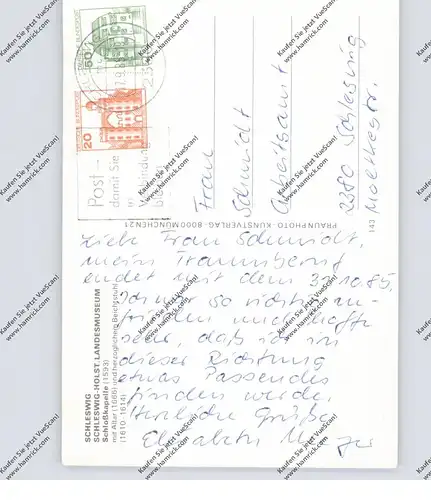 SCHLESWIG
SCHLESWIG-HOLST. LANDESMUSEUM
Schloßkapelle (1593)
mit Altar (1666) und herzoglichem Betstuhl
(1610-1614)
Liebe Frau Schmidt,
mein Traumberuf
endet mit dem 31.10.85.
so richtig
daß ich in
dieser Richtung
etwas Passendes
finden werde.
Herzliche Grüße
PRAUN-PHOTO · KUNSTVERLAG · 8000 MÜNCHEN 21
143
50
20
Post
damit Sie
in
Verbindung
Frau
Schmidt
Arbeitsamt
2380 Schleswig
Moltkestr.
Kaufen Sie jetzt VueScan!
www.hamrick.com